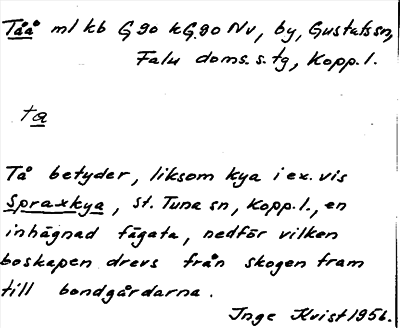 Tåå ml kb G 90 kG.90 Nv, by, Gustafs sn,
Falu doms. s. tg, Kopp. l.
ta
Tå betyder, liksom kya i ex. vis
Spraxkya, St. Tuna sn, Kopp. l., en
inhägnad fägata, nedför vilken
boskapen drevs från skogen fram
till bondgårdarna.
Inge Kvist 1956.